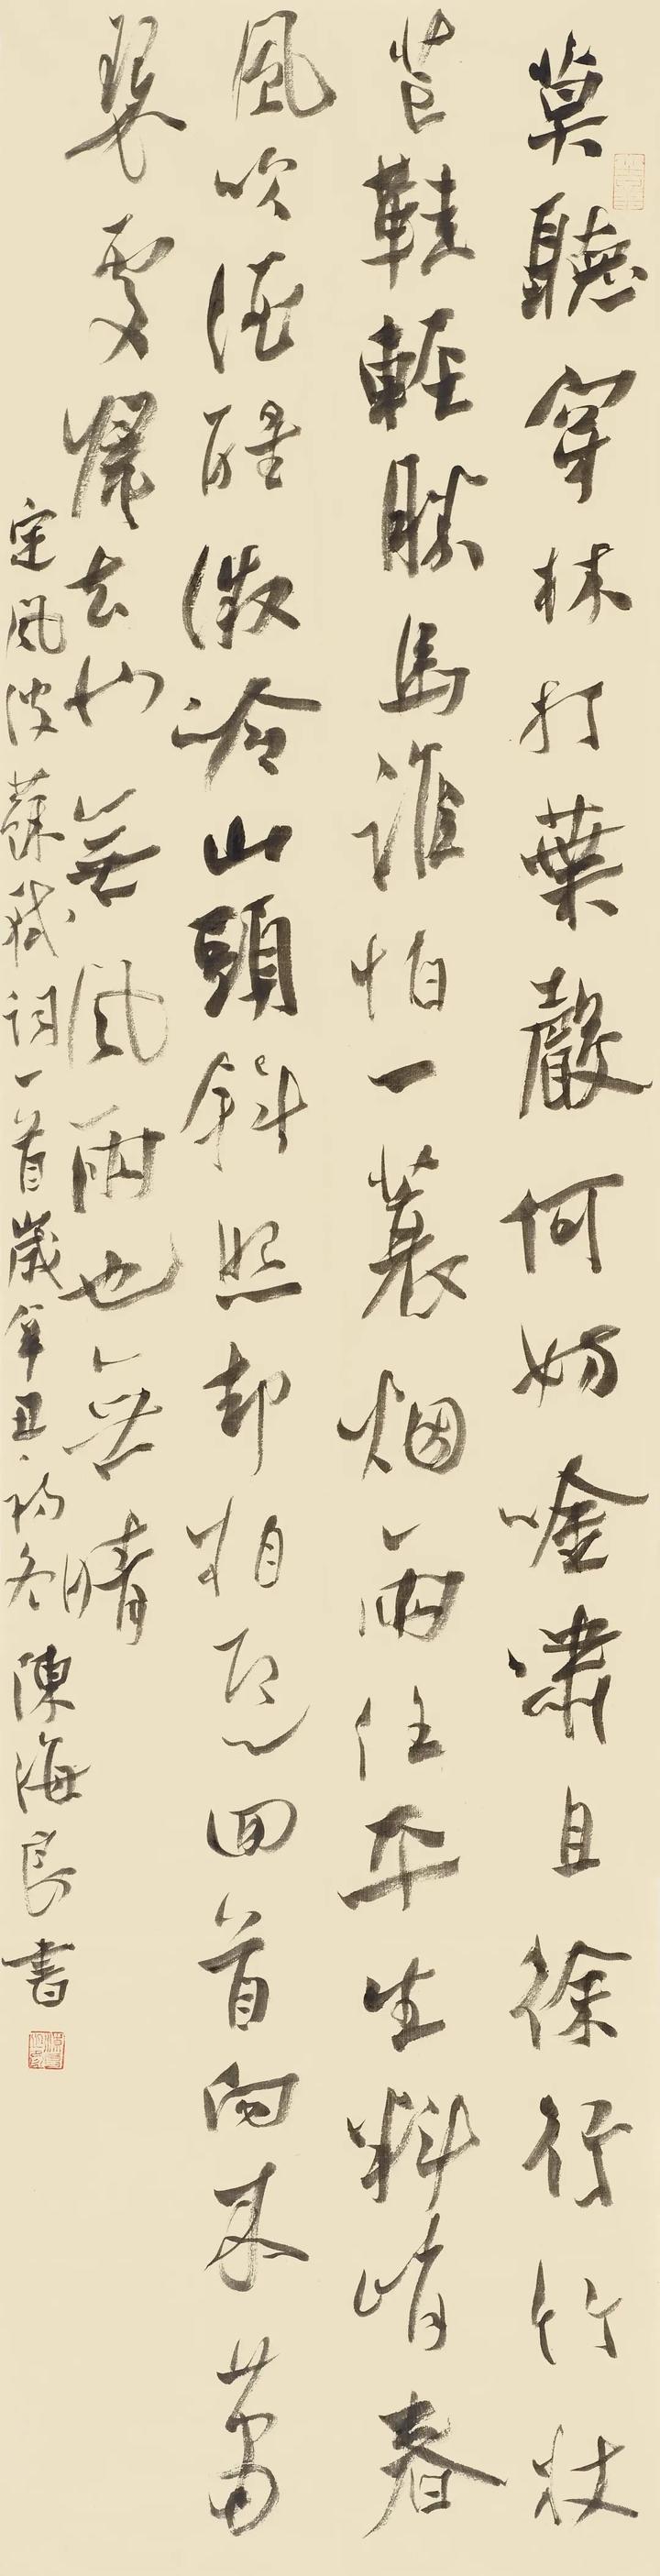 莫聽穿林打葉聲何妨吟嘯且徐行竹杖
芒鞋輕勝馬誰怕一蓑烟雨任平生料峭春
風吹酒醒微冷山頭斜照却相迎回首向來蕭
瑟處歸去也無風雨也無晴
定風波蘇軾詞一首歲辛丑初冬陳海良書